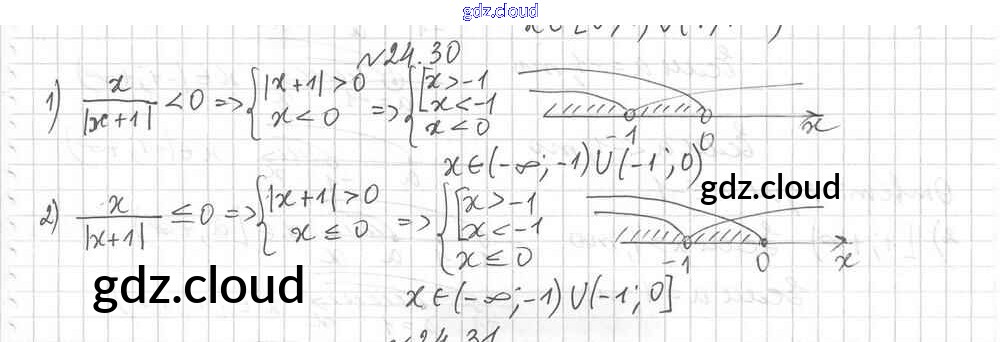 gdz.cloud
№24.30
1) x/|x+1| < 0 => { |x+1| > 0 x < 0 => { [ x > -1 x < -1 x < 0 -1 0 x
x ∈ (-∞; -1) ∪ (-1; 0)
gdz.cloud
2) x/|x+1| ≤ 0 => { |x+1| > 0 x ≤ 0 => { [ x > -1 x < -1 x ≤ 0 -1 0 x
gdz.cloud
x ∈ (-∞; -1) ∪ (-1; 0]
№24.31